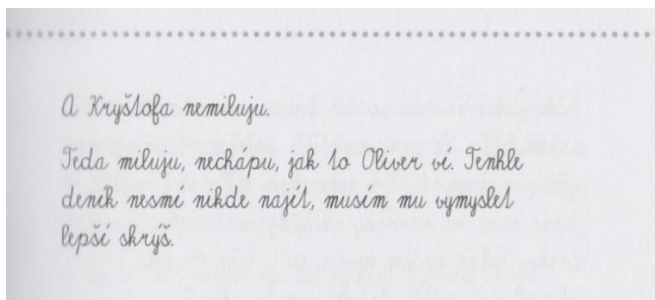 A Kryštofa nemiluju.
Teda miluju, nechápu, jak to Oliver ví. Tenhle
deník nesmí nikde najít, musím mu vymyslet
lepší skrýš.